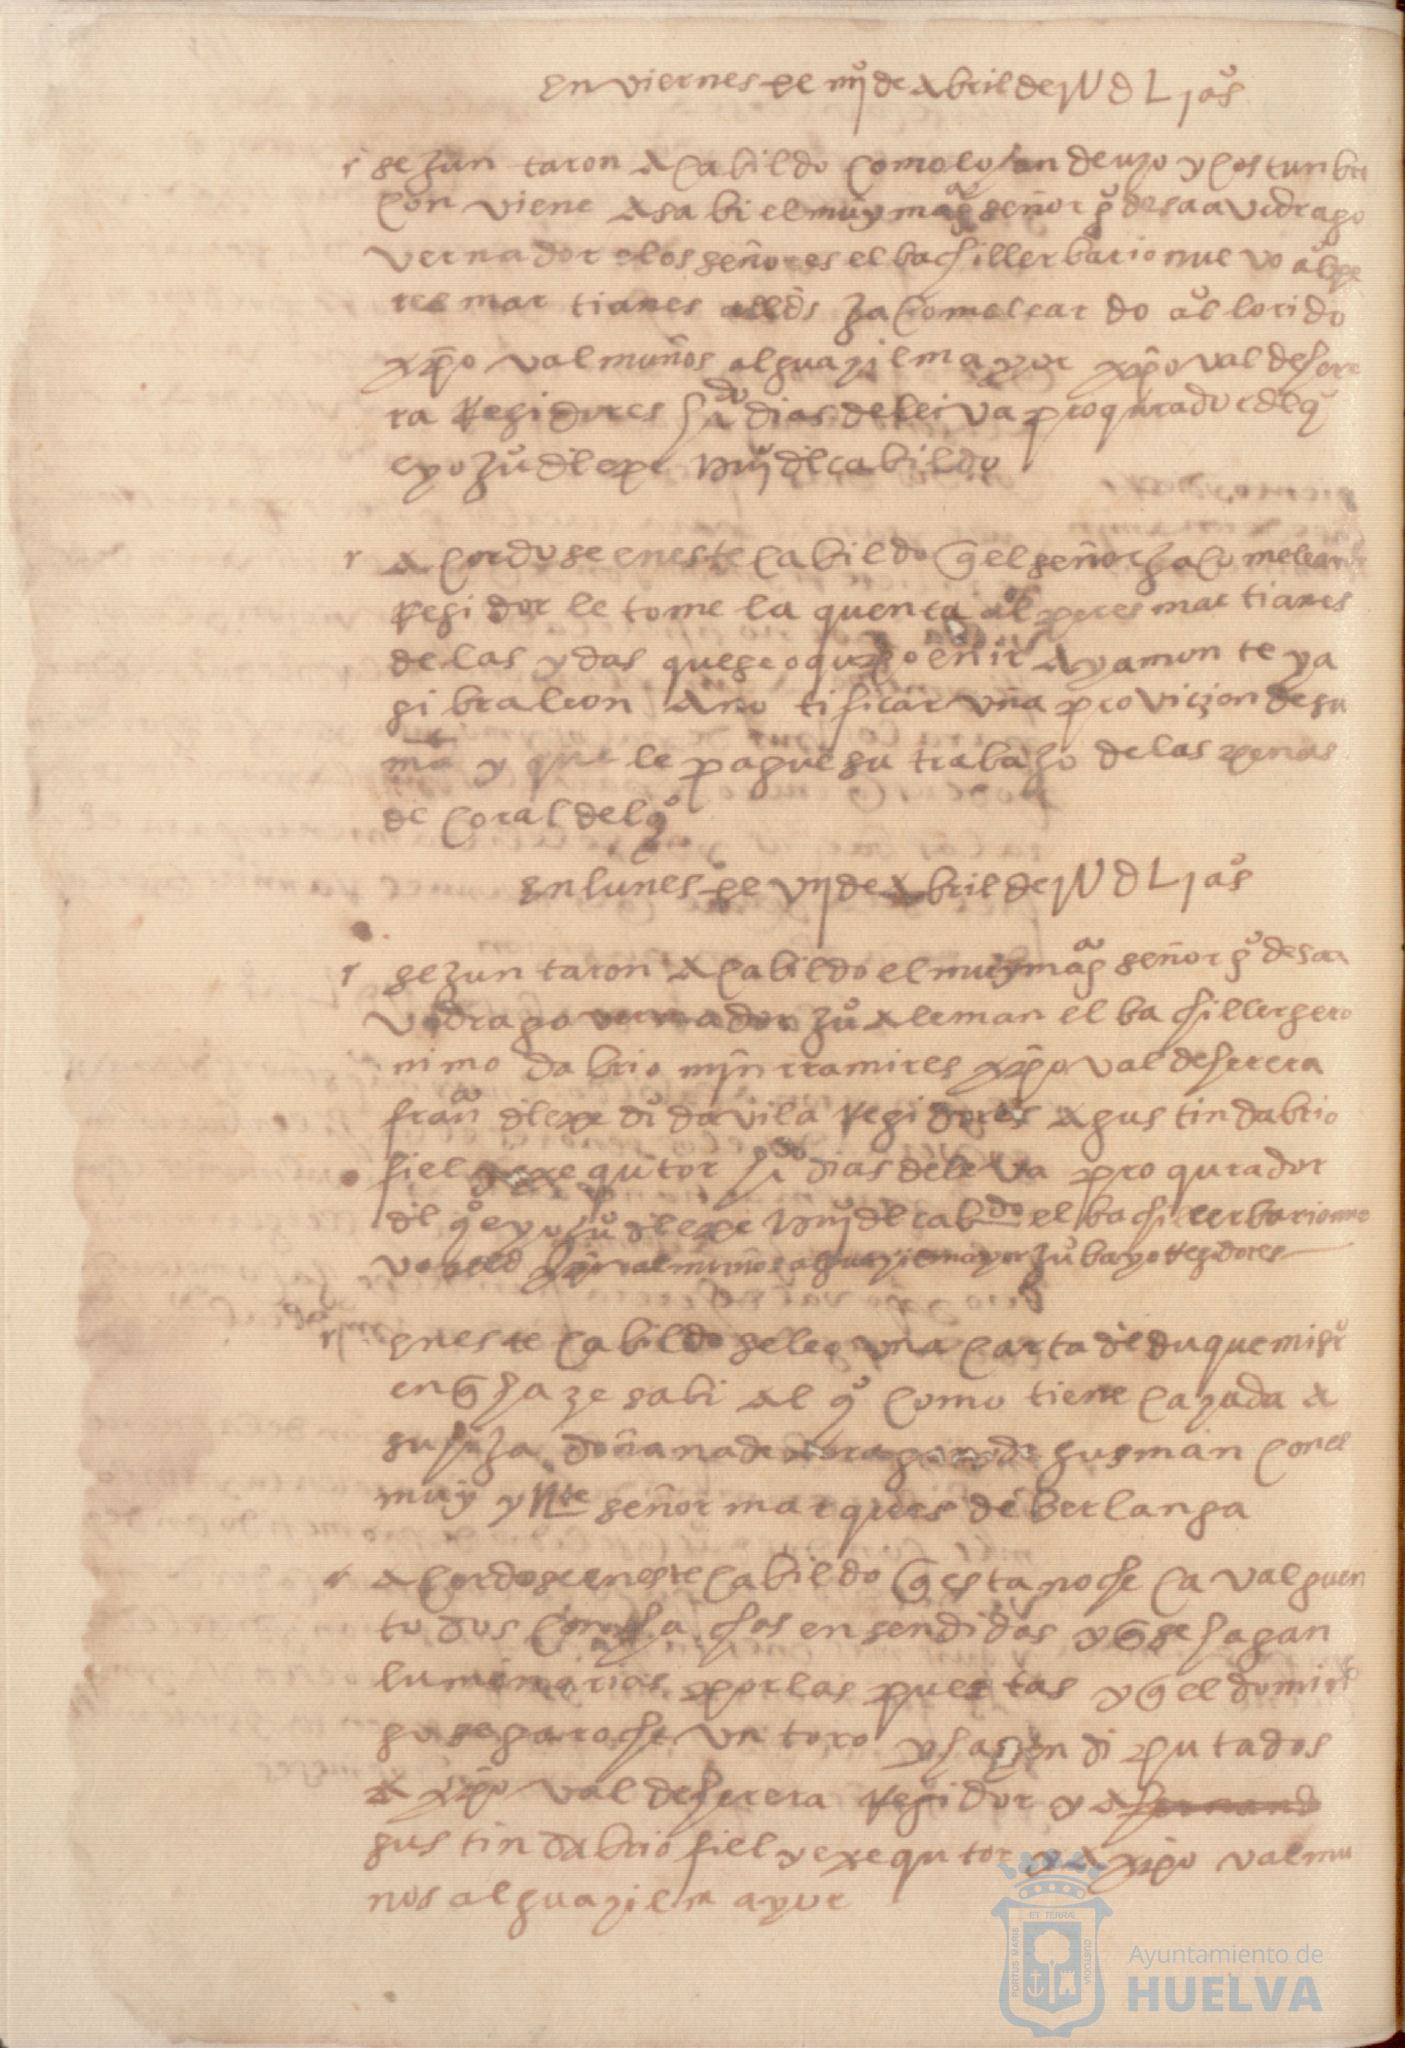 en viernes se iiijº de abril de jU d L j aºs
r se zuntaron a cabildo como lo an de uzo y costunbre
conviene a sabi el muy magco señor gº de saavedra go
vernador e los señores el bachiller bario nuevo albº pe
res martianes allds jacome lcardo albº lorido
xpoval muños alguazil mayor xpoval de here
ra Regidores hdo dias de leiva procurador del qº
e yo juº de lepe escrivº del cabildo
r acordose en este cabildo q el señor jacome lcardo
Regidor le tome la quenta albº peres martianes
de las ydas que se oqupo en ir a ayamonte y a
gibraleon a notificar una provicion de su
mad y que le pague su trabajo de las penas
de coral del qº
en lunes se vij de abril de jU d L j aºs
r se zuntaron a cabildo el muy magco señor gº de saa
vedra governador juº aleman el bachiller gero
nimo dabrio mjn rramires xpoval de herera
franco de lepe diº davila Regidores agustin dabrio
fiel y exequtor hdo dias de leiva proqurador
del qº e yo juº de lepe escrivº del cabdo el bachiller barionue
vo alld xpoval muños alguazil mayor juº bayo regidores
en este cabildo se leo una carta del duque mi sr
en q haze sabi al qº como tiene cazada a
su hija doña na de aragon de gusman con el
muy ylltre señor marques de berlanga
r acordose en este cabildo q esta noche cavalguen
todos con hachos ensendidos y q se hagan
lumenarias por las puertas y q el domin
go se garoche un toro y hasen diputados
a xpoval de herera Regidor y a
gustin dabrio fiel y exequtor y a xpoval mu
nos alguazil mayor
ET TERRÆ
PORTUS MARIS
CUSTODIA
Ayuntamiento de
HUELVA